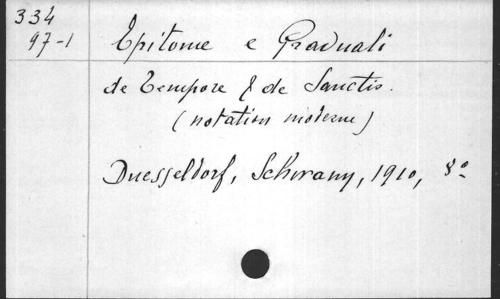 334
97-1
Epitome e Graduali
de Tempore & de Sanctis.
(notation moderne)
Duesseldorf, Schwann, 1910, 8º